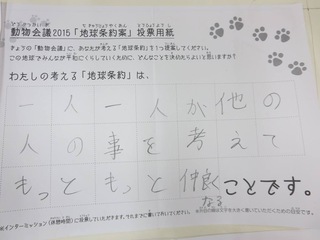 動物会議2015「地球条約案」投票用紙
きょうの「動物会議」に、あなたが考える「地球条約」を1つ提案してください。
この地球でみんなが平和にくらしていくために、どんなことを決めたらよいと思いますか?
わたしの考える「地球条約」は、
一人一人が他の
人の事を考えて
もっともっと仲良く
なる
ことです。
※インターミッション(休憩時間)に投票していただきます。でたまでに書いておいてください。